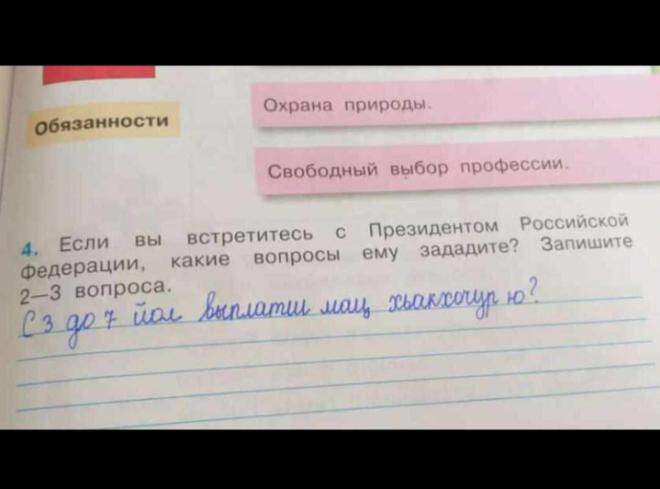 Охрана природы.
Обязанности
Свободный выбор профессии.
4. Если вы встретитесь с Президентом Российской
Федерации, какие вопросы ему зададите? Запишите
2—3 вопроса.
С 3 до 7 йол выплатш мац хьакхочур ю?